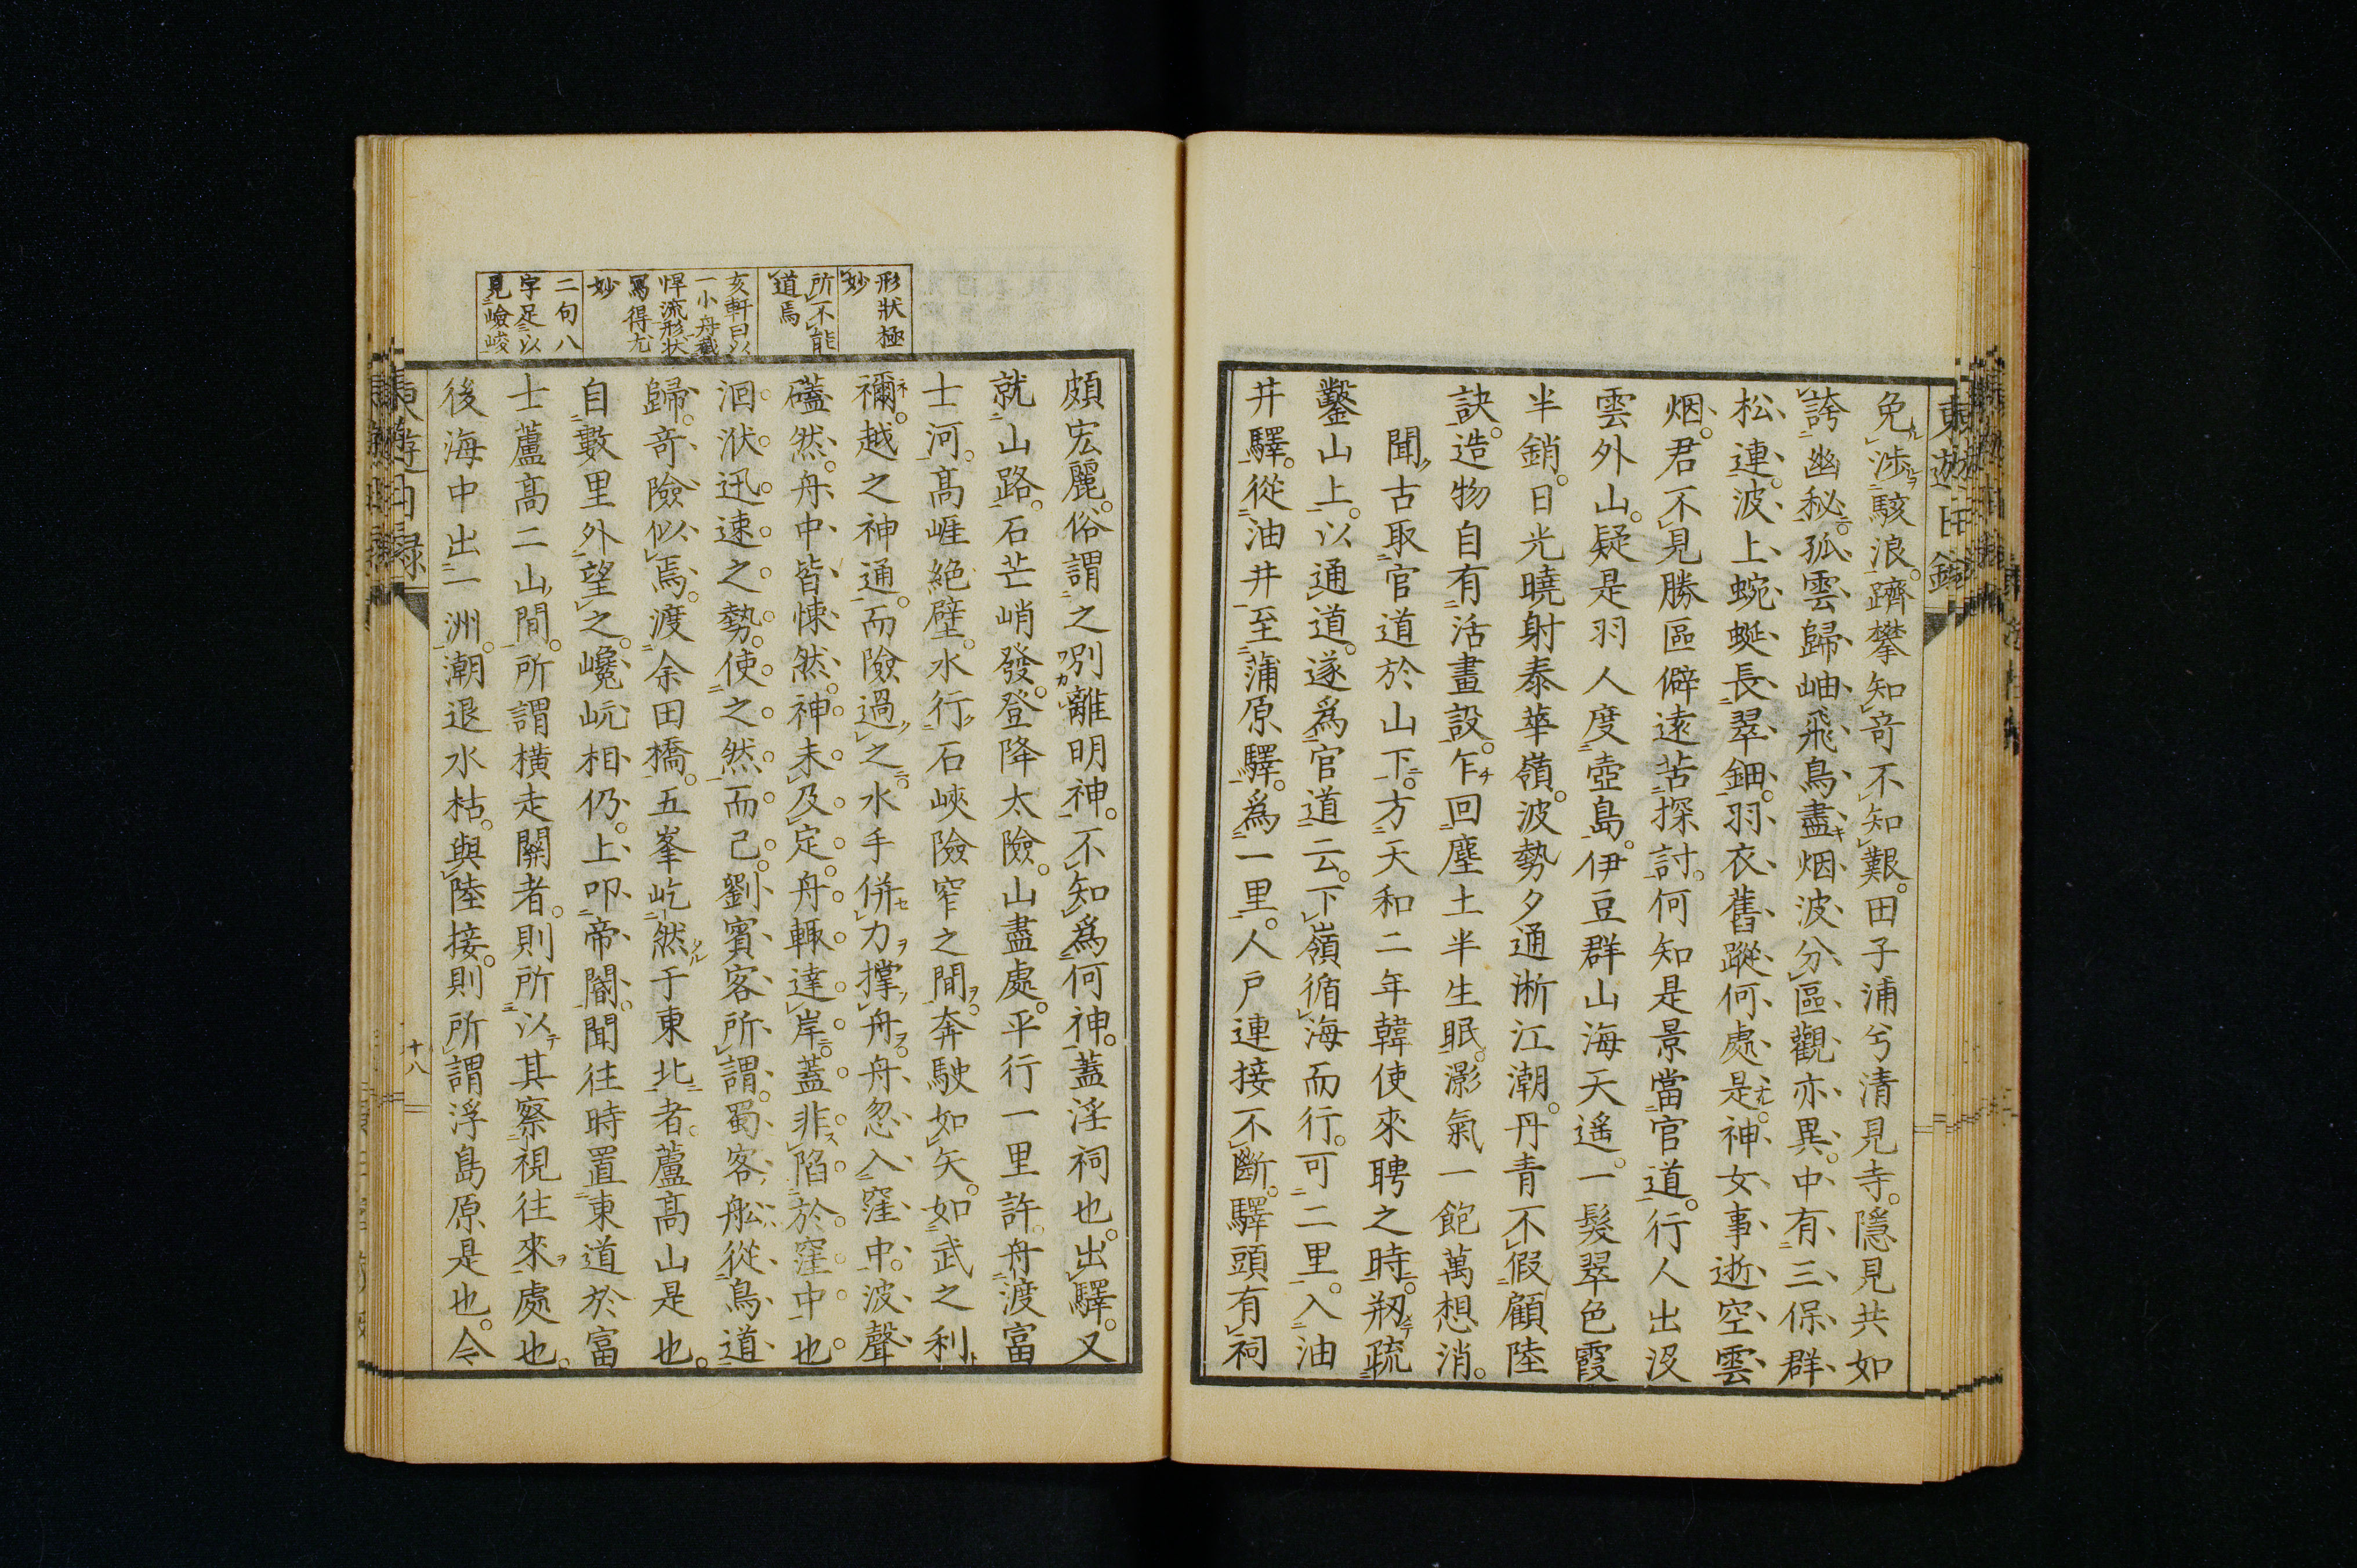 免涉駭浪。躋攀知奇不知艱。田子浦兮清見寺。隱見共如
誇幽秘。孤雲歸岫飛鳥盡。烟波分區觀亦異。中有三保群
松連。波上蜿蜒長翠鈿。羽衣舊蹤何處是。神女事逝空雲
烟。君不見勝區僻遠苦探討。何知是景當官道。行人出没
雲外山。疑是羽人度壺島。伊豆群山海天遙。一髮翠色霞
半銷。日光曉射泰華嶺。波勢夕通淅江潮。丹青不假顧陸
訣。造物自有活畫設。乍回塵土半生眠。灝氣一飽萬想消。
聞古取官道於山下。方天和二年韓使來聘之時。剏疏
鑿山上。以通道。遂爲官道云。下嶺循海而行。可二里。入油
井驛。從油井至蒲原驛。爲一里。人戸連接不斷。驛頭有祠
頗宏麗。俗謂之別離明神。不知爲何神。蓋淫祠也。出驛。又
就山路。石芒峭發。登降太險。山盡處。平行一里許。舟渡富
士河。高崕絶壁。水行石峽險窄之間。奔駛如矢。如武之利
禰。越之神通。而險過之。水手併力撑舟。舟忽入窪中。波聲
礚然。舟中皆悚然。神未及定。舟輙達岸。蓋非陷於窪中也
洄洑迅速之勢。使之然而已。劉賓客所謂。蜀客舩從鳥道
歸。竒險似焉。渡余田橋。五峯屹然于東北者。蘆高山是也。
自數里外望之。巉岏相仍。上叩帝閽。聞往時置東道於富
士蘆高二山間。所謂横走關者。則所以其察視往來處也。
後海中出一洲。潮退水枯。與陸接。則所謂浮島原是也。今
形狀極
妙
所不能
道焉
亥軒曰以
一小舟截
悍流形狀
寫得尤
妙
二句八
字足以
見嶮峻
東遊日録
十八